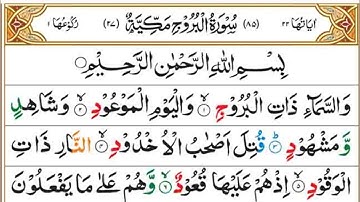 اٰيَاتُهَا ٢٢ (٨٥) سُوْرَةُ الْبُرُوْجِ مَكِّيَّةٌ (٢٧) رُكُوْعُهَا ١
بِسْمِ اللّٰهِ الرَّحْمٰنِ الرَّحِيْمِ
وَالسَّمَآءِ ذَاتِ الْبُرُوْجِ ۙ۝١ وَالْيَوْمِ الْمَوْعُوْدِ ۙ۝٢ وَشَاهِدٍ
وَّمَشْهُوْدٍ ؕ۝٣ قُتِلَ اَصْحٰبُ الْاُخْدُوْدِ ۙ۝٤ النَّارِ ذَاتِ
الْوَقُوْدِ ۙ۝٥ اِذْ هُمْ عَلَيْهَا قُعُوْدٌ ۙ۝٦ وَّهُمْ عَلٰى مَا يَفْعَلُوْنَ